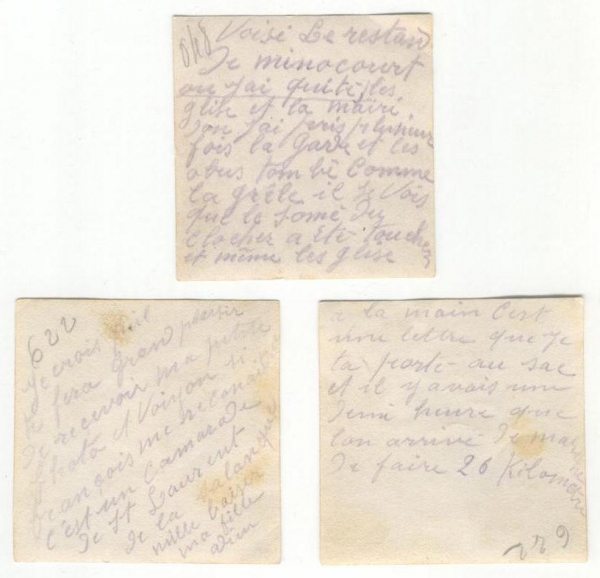 848
Voisi Le restan
De minocourt
ou jai quité les
glise et la mairi
don jai pris plusieur
fois la garde et les
obus tom bé Comme
la grêle il se Vois
que le somé du
Clocher a été touchez
et même les glise
622
je crois quil
te fera Grand plaisir
De recevoir ma petite
Photo et Voiyon si
François me reconaitra
C'est un Camarade
De St Laurent
De la Salanque
mille baiser
ma fille
adieu
a la main C'est
une lettre que je
ta porte au sac
et il y avais une
Demi heure que
lon arrivé De marche
De faire 26 Kilometre
622